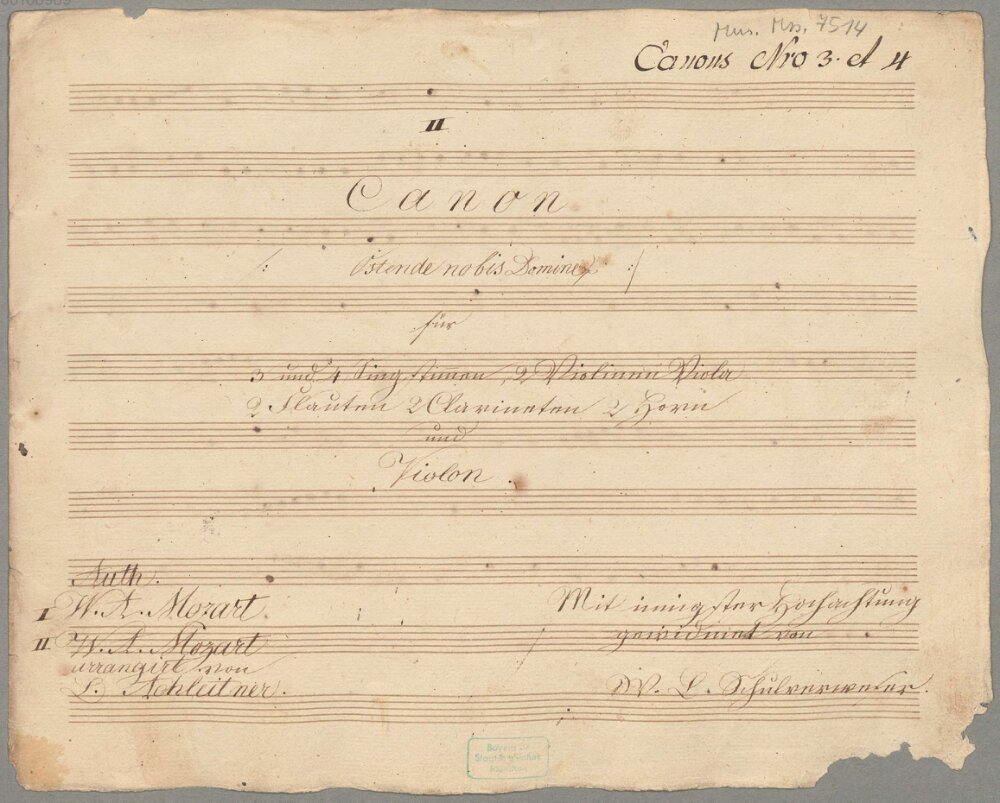 80100969
Mus. Mss. 7514
Canons Nro 3. et 4
II
Canon
/: Ostende nobis Domine :/
für
3 und 4 Singstimmen, 2 Violinen Viola
2 Flauten 2 Clarineten 2 Horn
und
Violon.
Auth.
I W. A. Mozart.
II W. A. Mozart
arrangirt von
L. Achleitner.
Mit innigster Hochachtung
gewidmet von
L. Schulverweser.
Bayerische
Staatsbibliothek
München